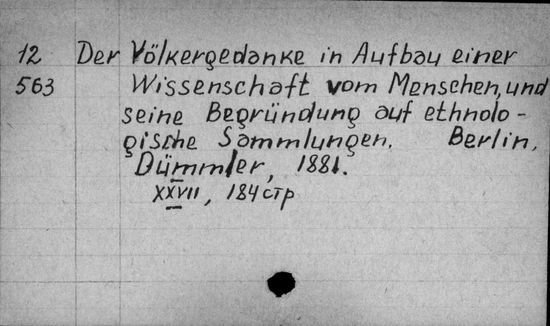 12 Der Völkergedanke in Aufbau einer
563 Wissenschaft vom Menschen, und
seine Begründung auf ethnolo-
gische Sammlungen. Berlin,
Dümmler, 1881.
XXVII, 184 стр